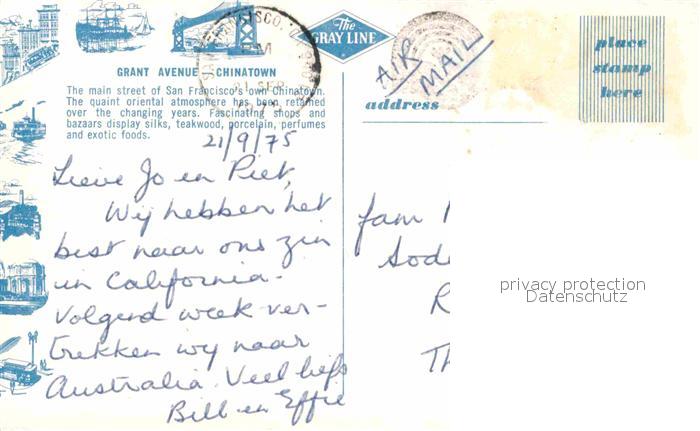 The
GRAY LINE
GRANT AVENUE CHINATOWN
The main street of San Francisco's own Chinatown.
The quaint oriental atmosphere has been retained
over the changing years. Fascinating shops and
bazaars display silks, teakwood, porcelain, perfumes
and exotic foods.
AIR
MAIL
place
stamp
here
address
21/9/75
Lieve Jo en Piet,
Wij hebben het
best naar ons zin
in California.
Volgend week ver-
trekken wij naar
Australia. Veel liefs
Bill en Effie
fam
privacy protection
Datenschutz